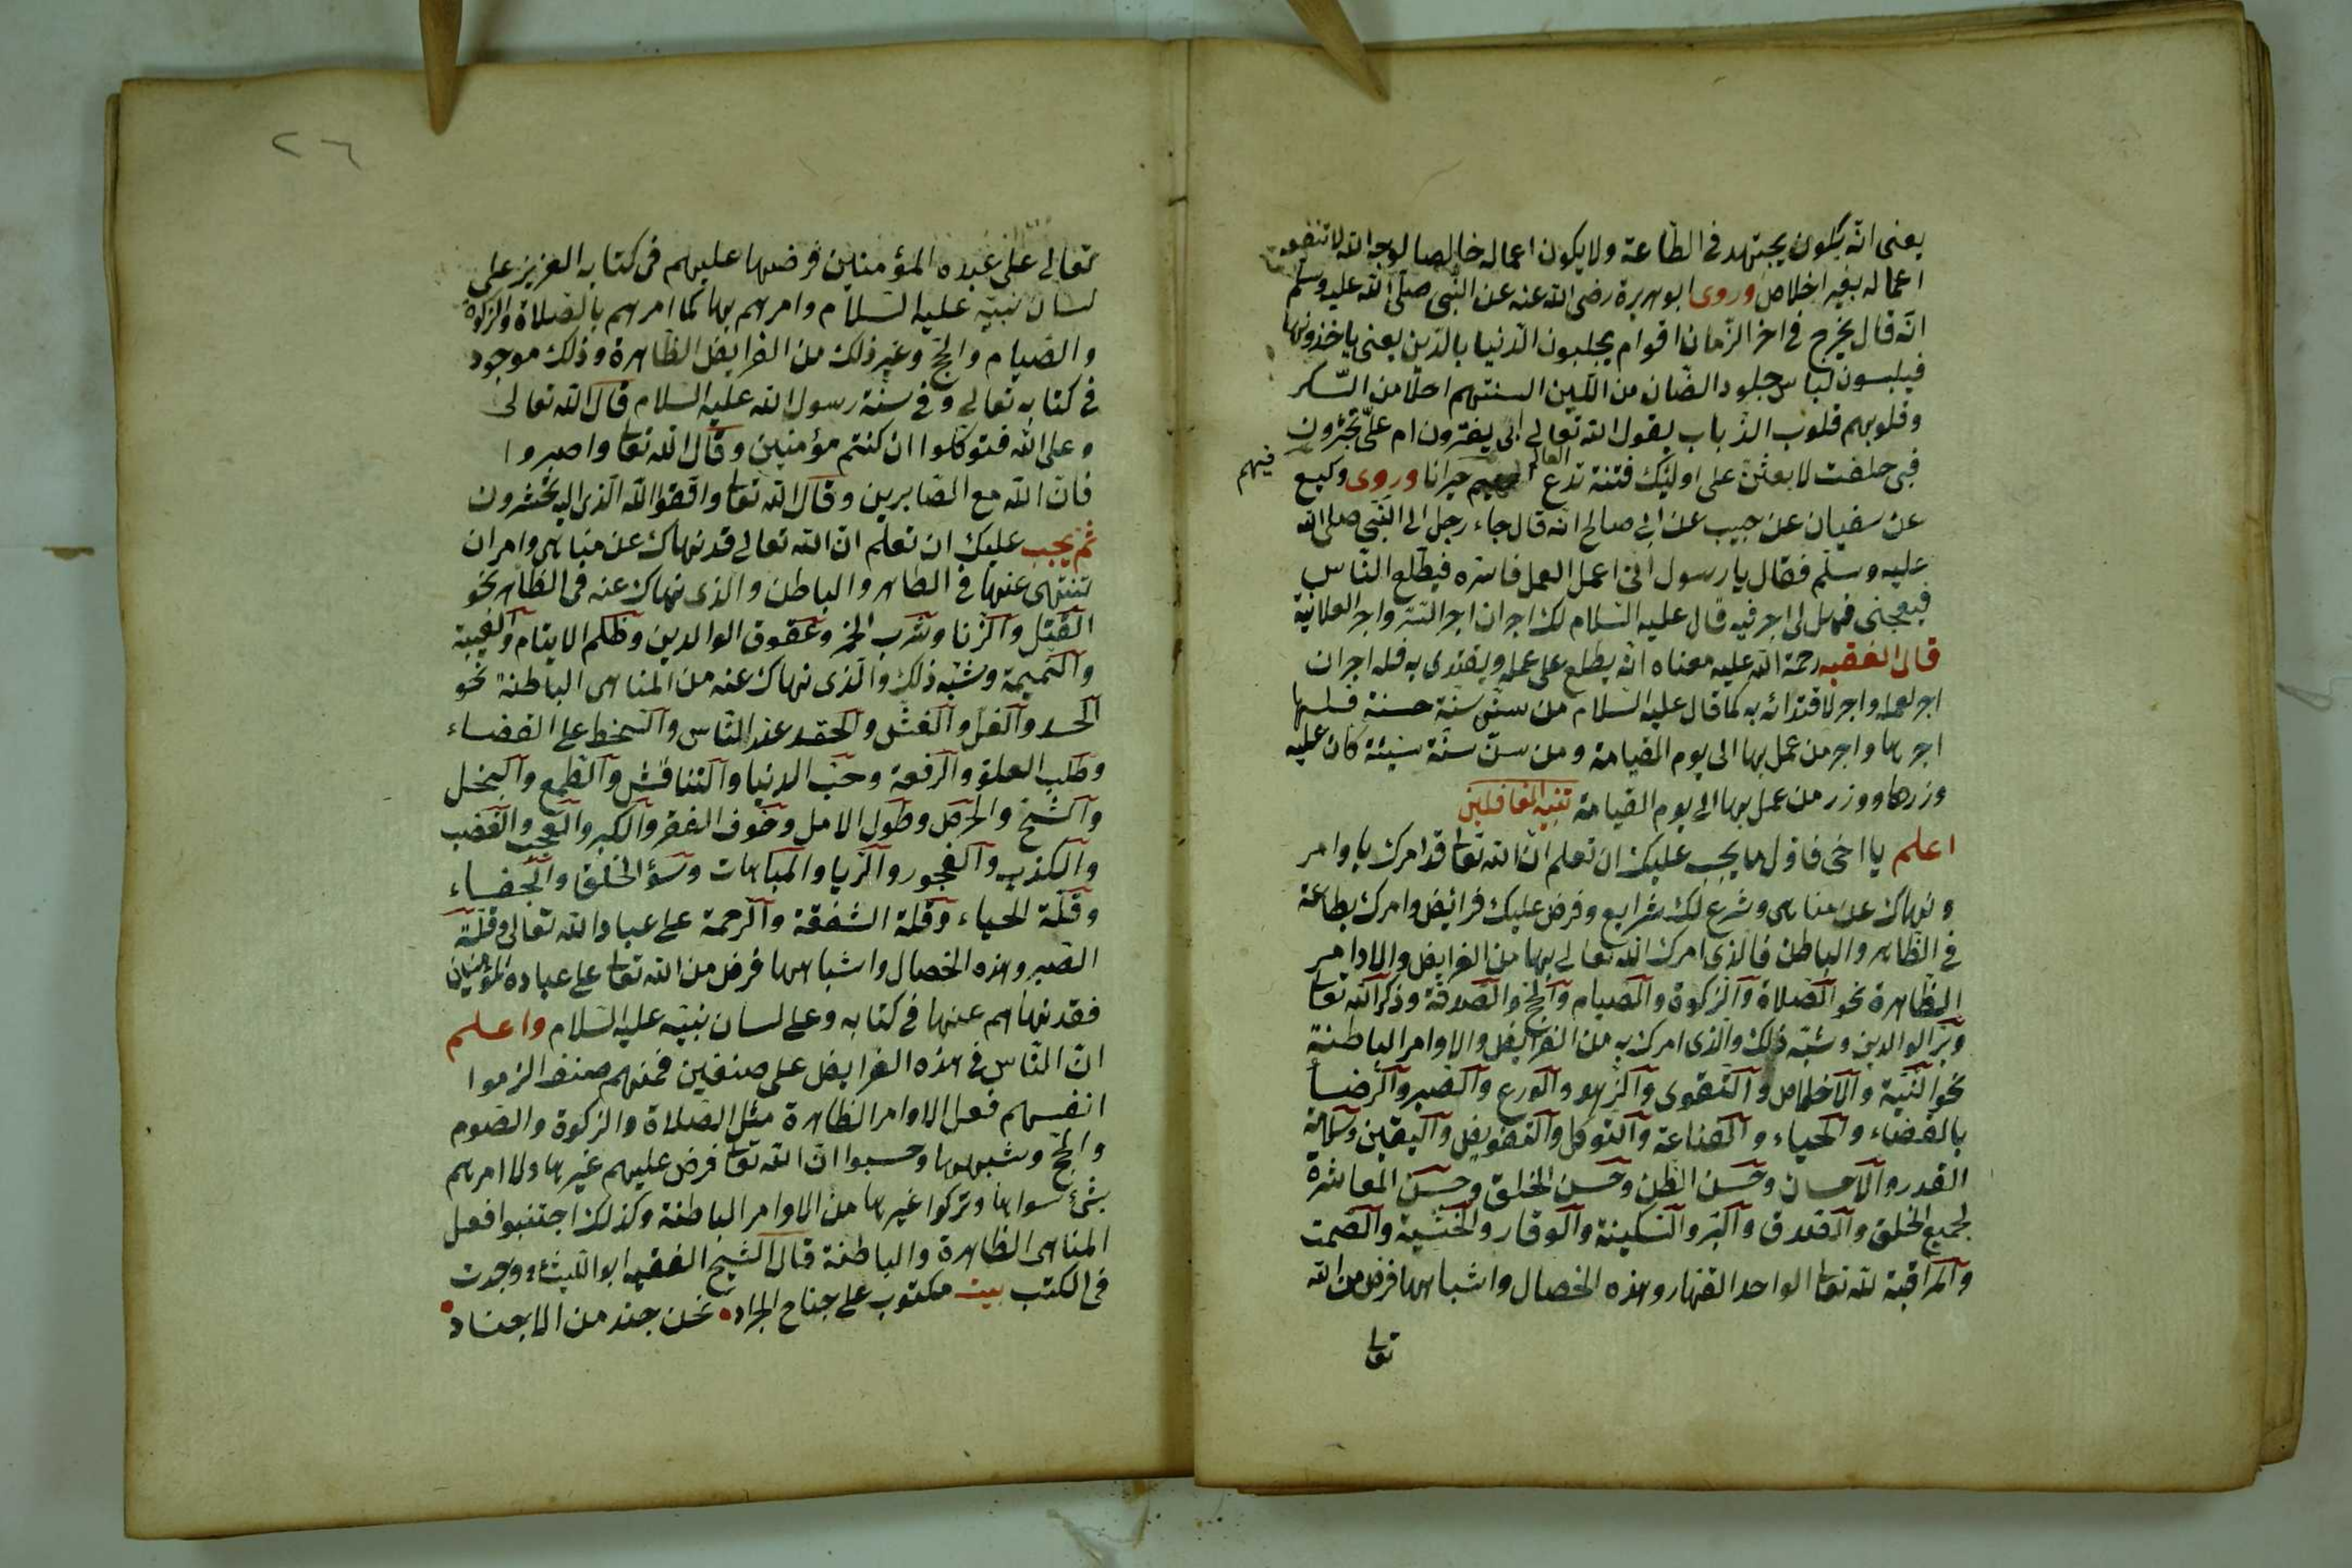 يعنى انّه يكون يجتهد فى الطّاعة ولا يكون اعماله خالصا لوجه الله لا تنفعه
اعماله بغير اخلاص وروى ابو هريرة رضى الله عنه عن النّبى صلّى الله عليه وسلّم
انّه قال يخرج فى اخر الزّمان اقوام يجلبون الدّنيا بالدّين يعنى ياخذونها
فيلبسون لباس جلود الضّان من اللّين السنتهم احلا من السّكر
وقلوبهم قلوب الذّباب يقول الله تعالى ابى يفترون ام علىّ تجترون
فبى حلفت لابعثنّ على اولئك فتنة تدع العالم فيهم حيرانا وروى وكيع
عن سفيان عن حبيب عن ابى صالح انّه قال جاء رجل الى النّبى صلى الله
عليه وسلّم فقال يا رسول انى اعمل العمل فاسّره فيطّلع النّاس
فيعجبنى فهل لى اجر فيه قال عليه السّلام لك اجران اجر السّر واجر العلانية
قال الفقيه رحمة الله عليه معناه انّه يطلع على عمله ويقتدى به فله اجران
اجر لعمله واجر لاقتدائه به كما قال عليه السّلام من سنّ سنّة حسنة فلها
اجرها واجر من عمل بها الى يوم القيامة ومن سنّ سنّة سيئة كان عليه
وزرها ووزر من عمل بها الى يوم القيامة تنبيه الغافلين
اعلم يا اخى فاوّل ما يجب عليك ان تعلم انّ الله تعالى قد امرك باوامر
ونهاك عن مناهى وشرع لك شرايع وفرض عليك فرائيض وامرك بطاعة
فى الظّاهر والباطن فالّذى امرك الله تعالى بها من الفرايض والاوامر
الظّاهرة نحو الصّلاة والزّكوة والصيام والحج والصدقة وذكر الله تعالى
وبرّ الوالدين وشبه ذلك والّذى امرك به من الفرايض والاوامر الباطنة
نحو النّية والاخلاص والتّقوى والزّهد والورع والصبر والرّضا
بالقضاء والحياء والقناعة والتوكل والتفويض واليقين وسلامة
القدر والاحسان وحسن الظّن وحسن الخلق وحسن المعاشرة
لجميع الخلق والصدق والبرّ والسّكينة والوقار والخشية والصمت
والمراقبة لله تعالى الواحد القهار وهذه الخصال واشباهها فرض من الله
تعالى
٢٦
تعالى على عبده المؤمنين فرضها عليهم فى كتابه العزيز على
لسان نبيّه عليه السّلام وامرهم بها كما امرهم بالصّلاة والزكوة
والصّيام والحجّ وغير ذلك من الفرايض الظّاهرة وذلك موجود
فى كتابه تعالى وفى سنّة رسول الله عليه السّلام قال الله تعالى
وعلى الله فتوكّلوا ان كنتم مؤمنين وقال الله تعالى واصبروا
فانّ الله مع الصّابرين وقال الله تعالى واتّقوا الله الّذى اليه تحشرون
ثم يجب عليك ان تعلم انّ الله تعالى قد نهاك عن مناهى وامر ان
تنتهى عنها فى الظاهر والباطن والّذى نهاك عنه فى الظّاهر نحو
القتل والزّنا وشرب الخمر وعقوق الوالدين وظلم الايتام والغيبة
والنّميمة وشبه ذلك والّذى نهاك عنه من المناهى الباطنة نحو
الحسد والغلّ والغشّ والحقد عند النّاس والسّخط على القضاء
وطلب العلوّ والرّفعة وحبّ الدنيا والتنافس والطّمع والبخل
والشّحّ والحرص وطول الامل وخوف الفقر والكبر والعجب والغضب
والكذب والفجور والرّيا والمباهات وسوؤ الخلق والجفاء
وقلّة الحياء وقلة الشفقة والرّحمة على عباد الله تعالى وقلّة
الصّبر وهذه الخصال واشباهها فرض من الله تعالى على عباده المؤمنين
فقد نهاهم عنها فى كتابه وعلى لسان نبيّه عليه السّلام واعلم
انّ النّاس فى هذه الفرايض على صنفين فمنهم صنف الزموا
انفسهم فعل الاوامر الظّاهرة مثل الصّلاة والزكوة والصّوم
والحجّ وشبهها وحسبوا انّ الله تعالى فرض عليهم غيرها ولا امرهم
بشئ سواها وتركوا غيرها من الاوامر الباطنة وكذلك اجتنبوا فعل
المناهى الظّاهرة والباطنة قال الشيخ الفقيه ابو اللّيث ووجدت
فى الكتب بيت مكتوب على جناح الجراد نحن جند من الاجناد